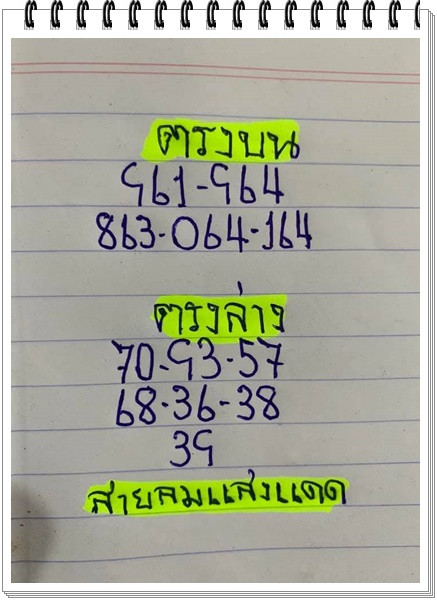 ตรงบน
961-964
863-064-164
ตรงล่าง
70-93-57
68-36-38
39
สายลมแสงแดด